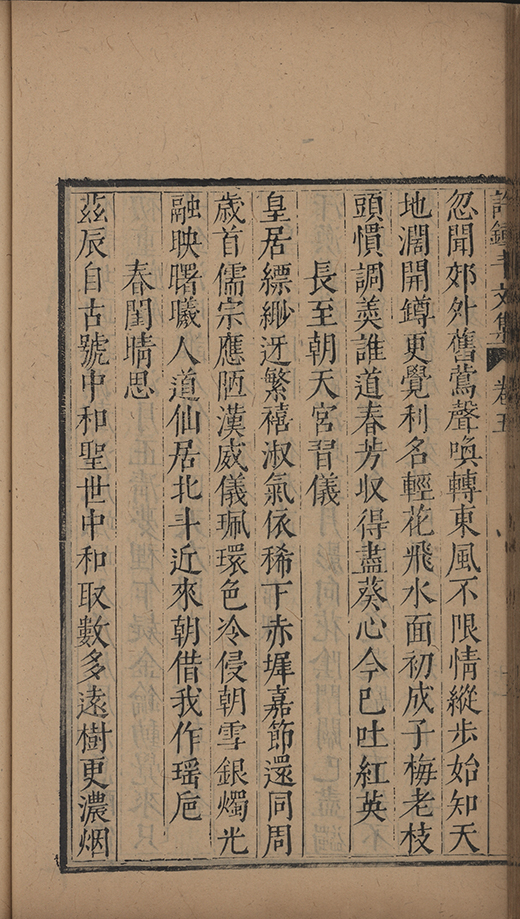 文集 卷五
忽聞郊外舊鶯聲喚轉東風不限情縱步始知天
地濶開鐏更覺利名輕花飛水面初成子梅老枝
頭慣調羮誰道春芳収得盡葵心今已吐紅英
長至朝天宮習儀
皇居縹緲迓繁禧淑氣依稀下赤墀嘉節還同周
歲首儒宗應陋漢威儀珮環色冷侵朝雪銀燭光
融映曙曦人道仙居北斗近來朝借我作瑶巵
春閨晴思
茲辰自古號中和聖世中和取數多遠樹更濃烟